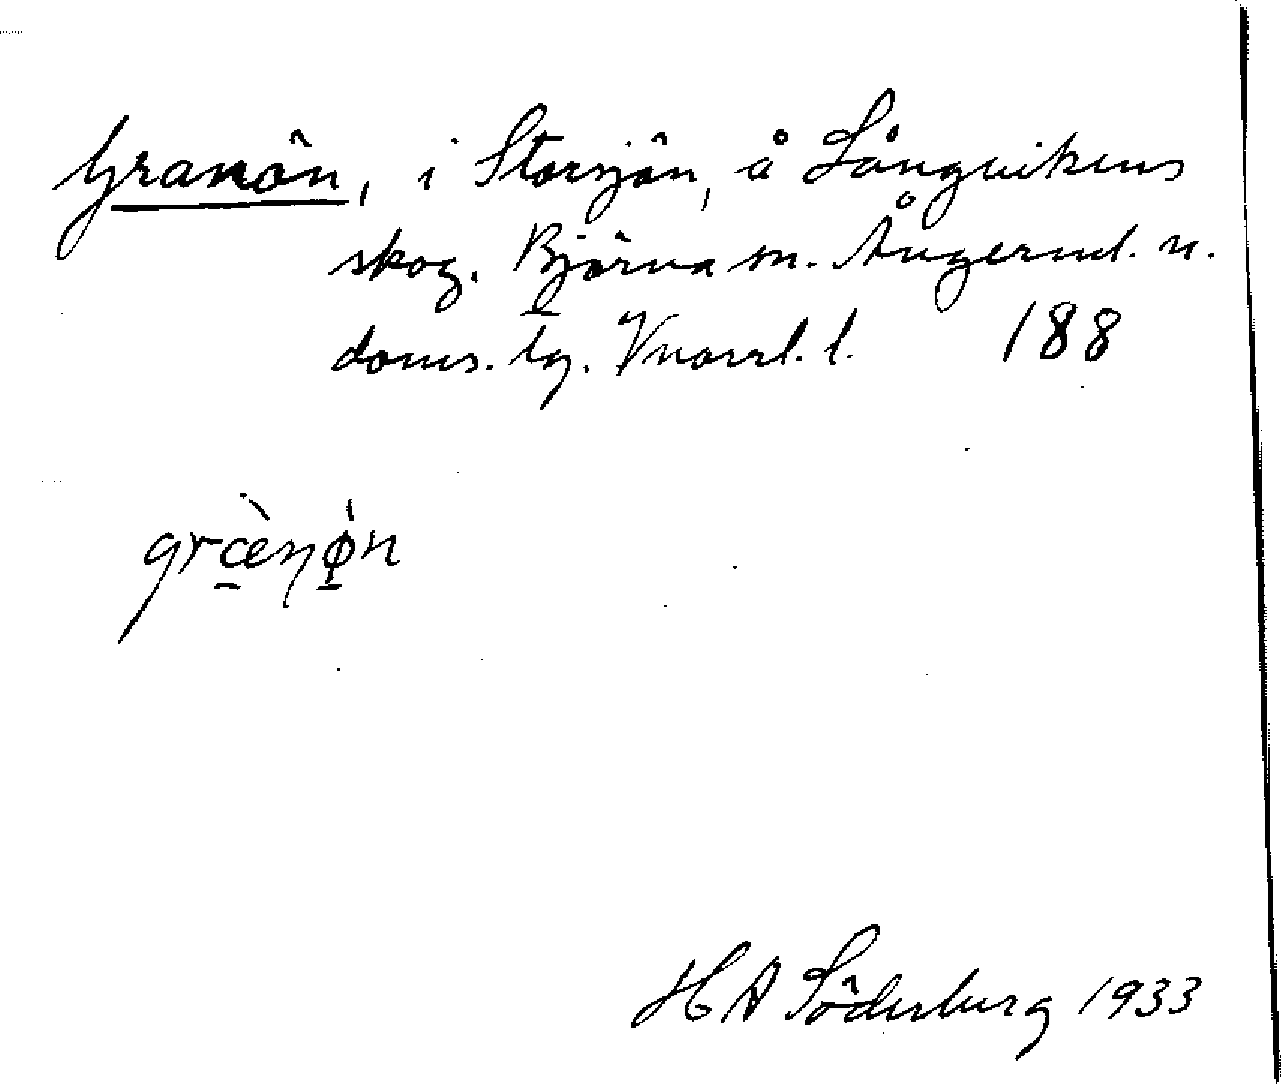 Granön, i Storsjön, å Långvikens
skog. Björna sn. Ångerml. n.
doms. lg. Vnorrl. l. 188
græ̀nø̀n
H A Söderberg 1933